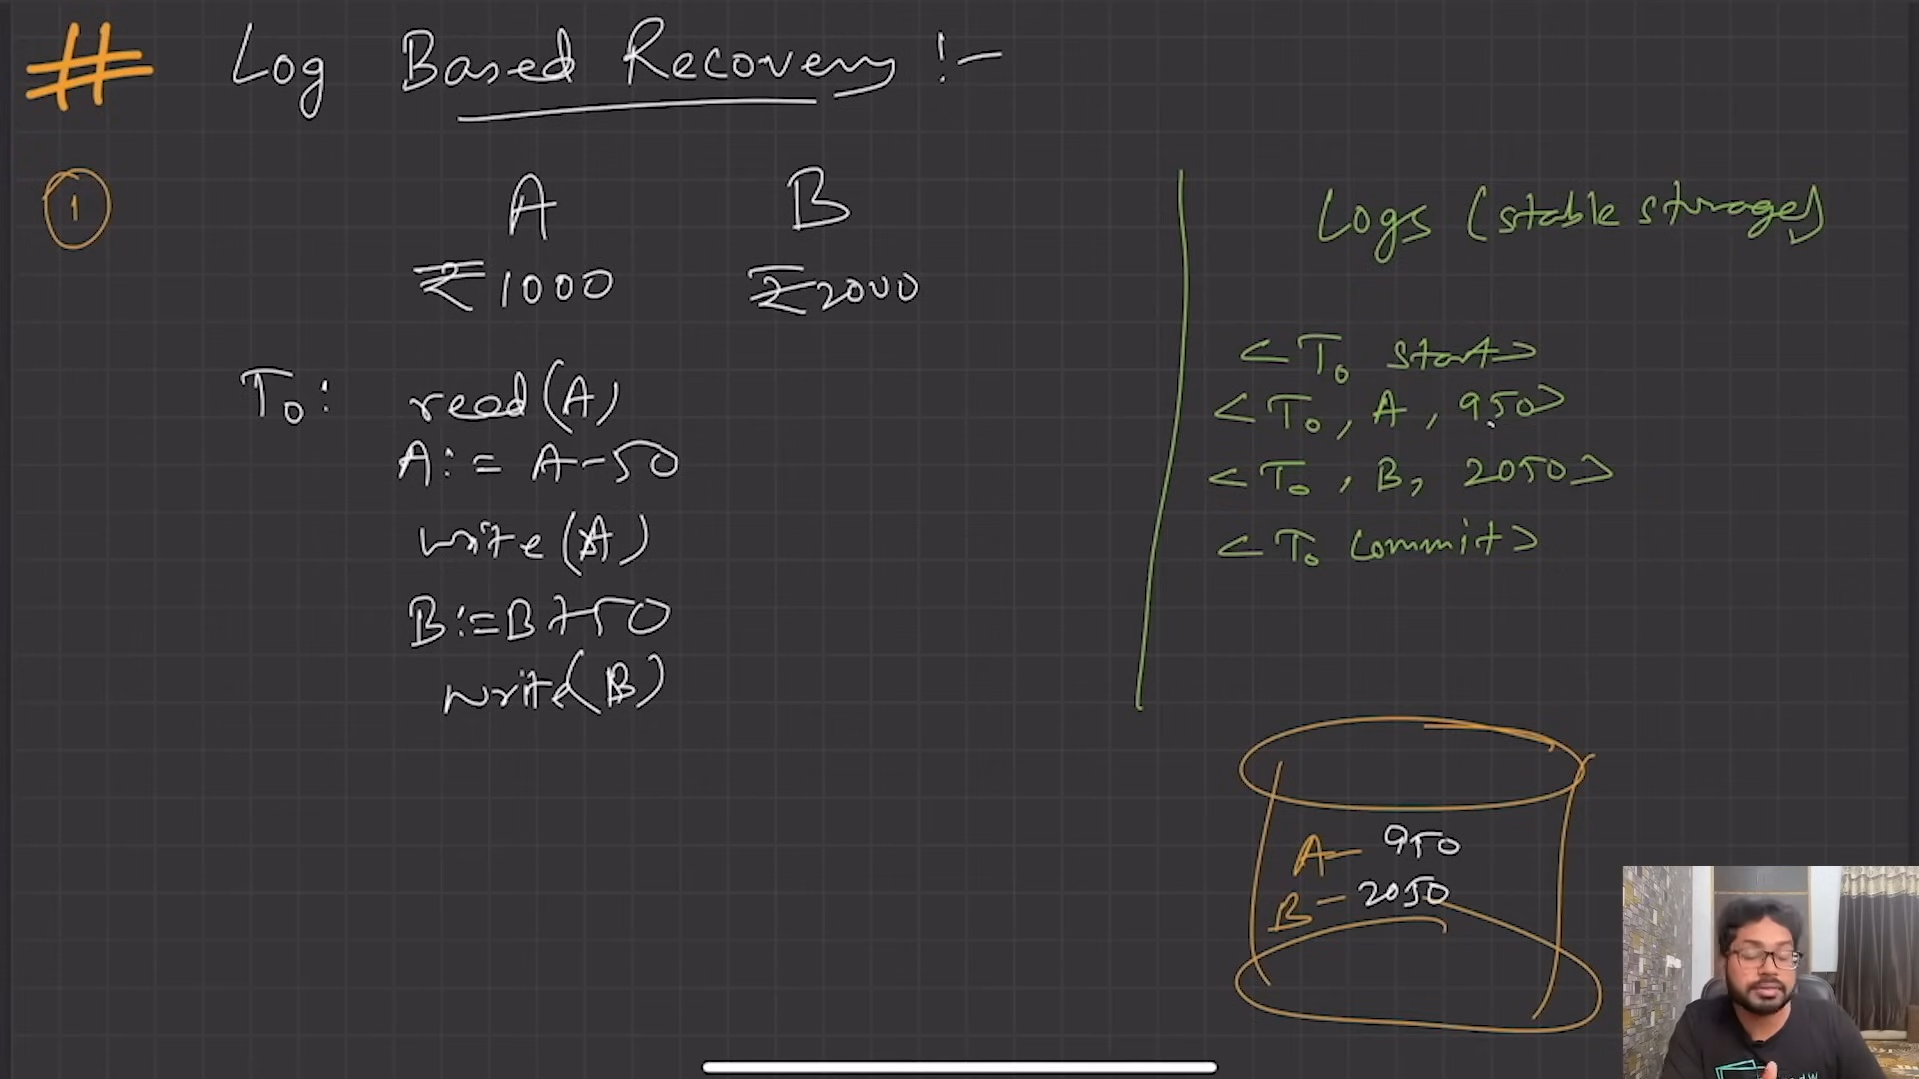 # Log Based Recovery :-
1
A B
₹1000 ₹2000
T0: read(A)
A:= A-50
write(A)
B:=B+50
write(B)
Logs (stable storage)
<T0 start>
<T0, A, 950>
<T0, B, 2050>
<T0 commit>
A- 950
B- 2050